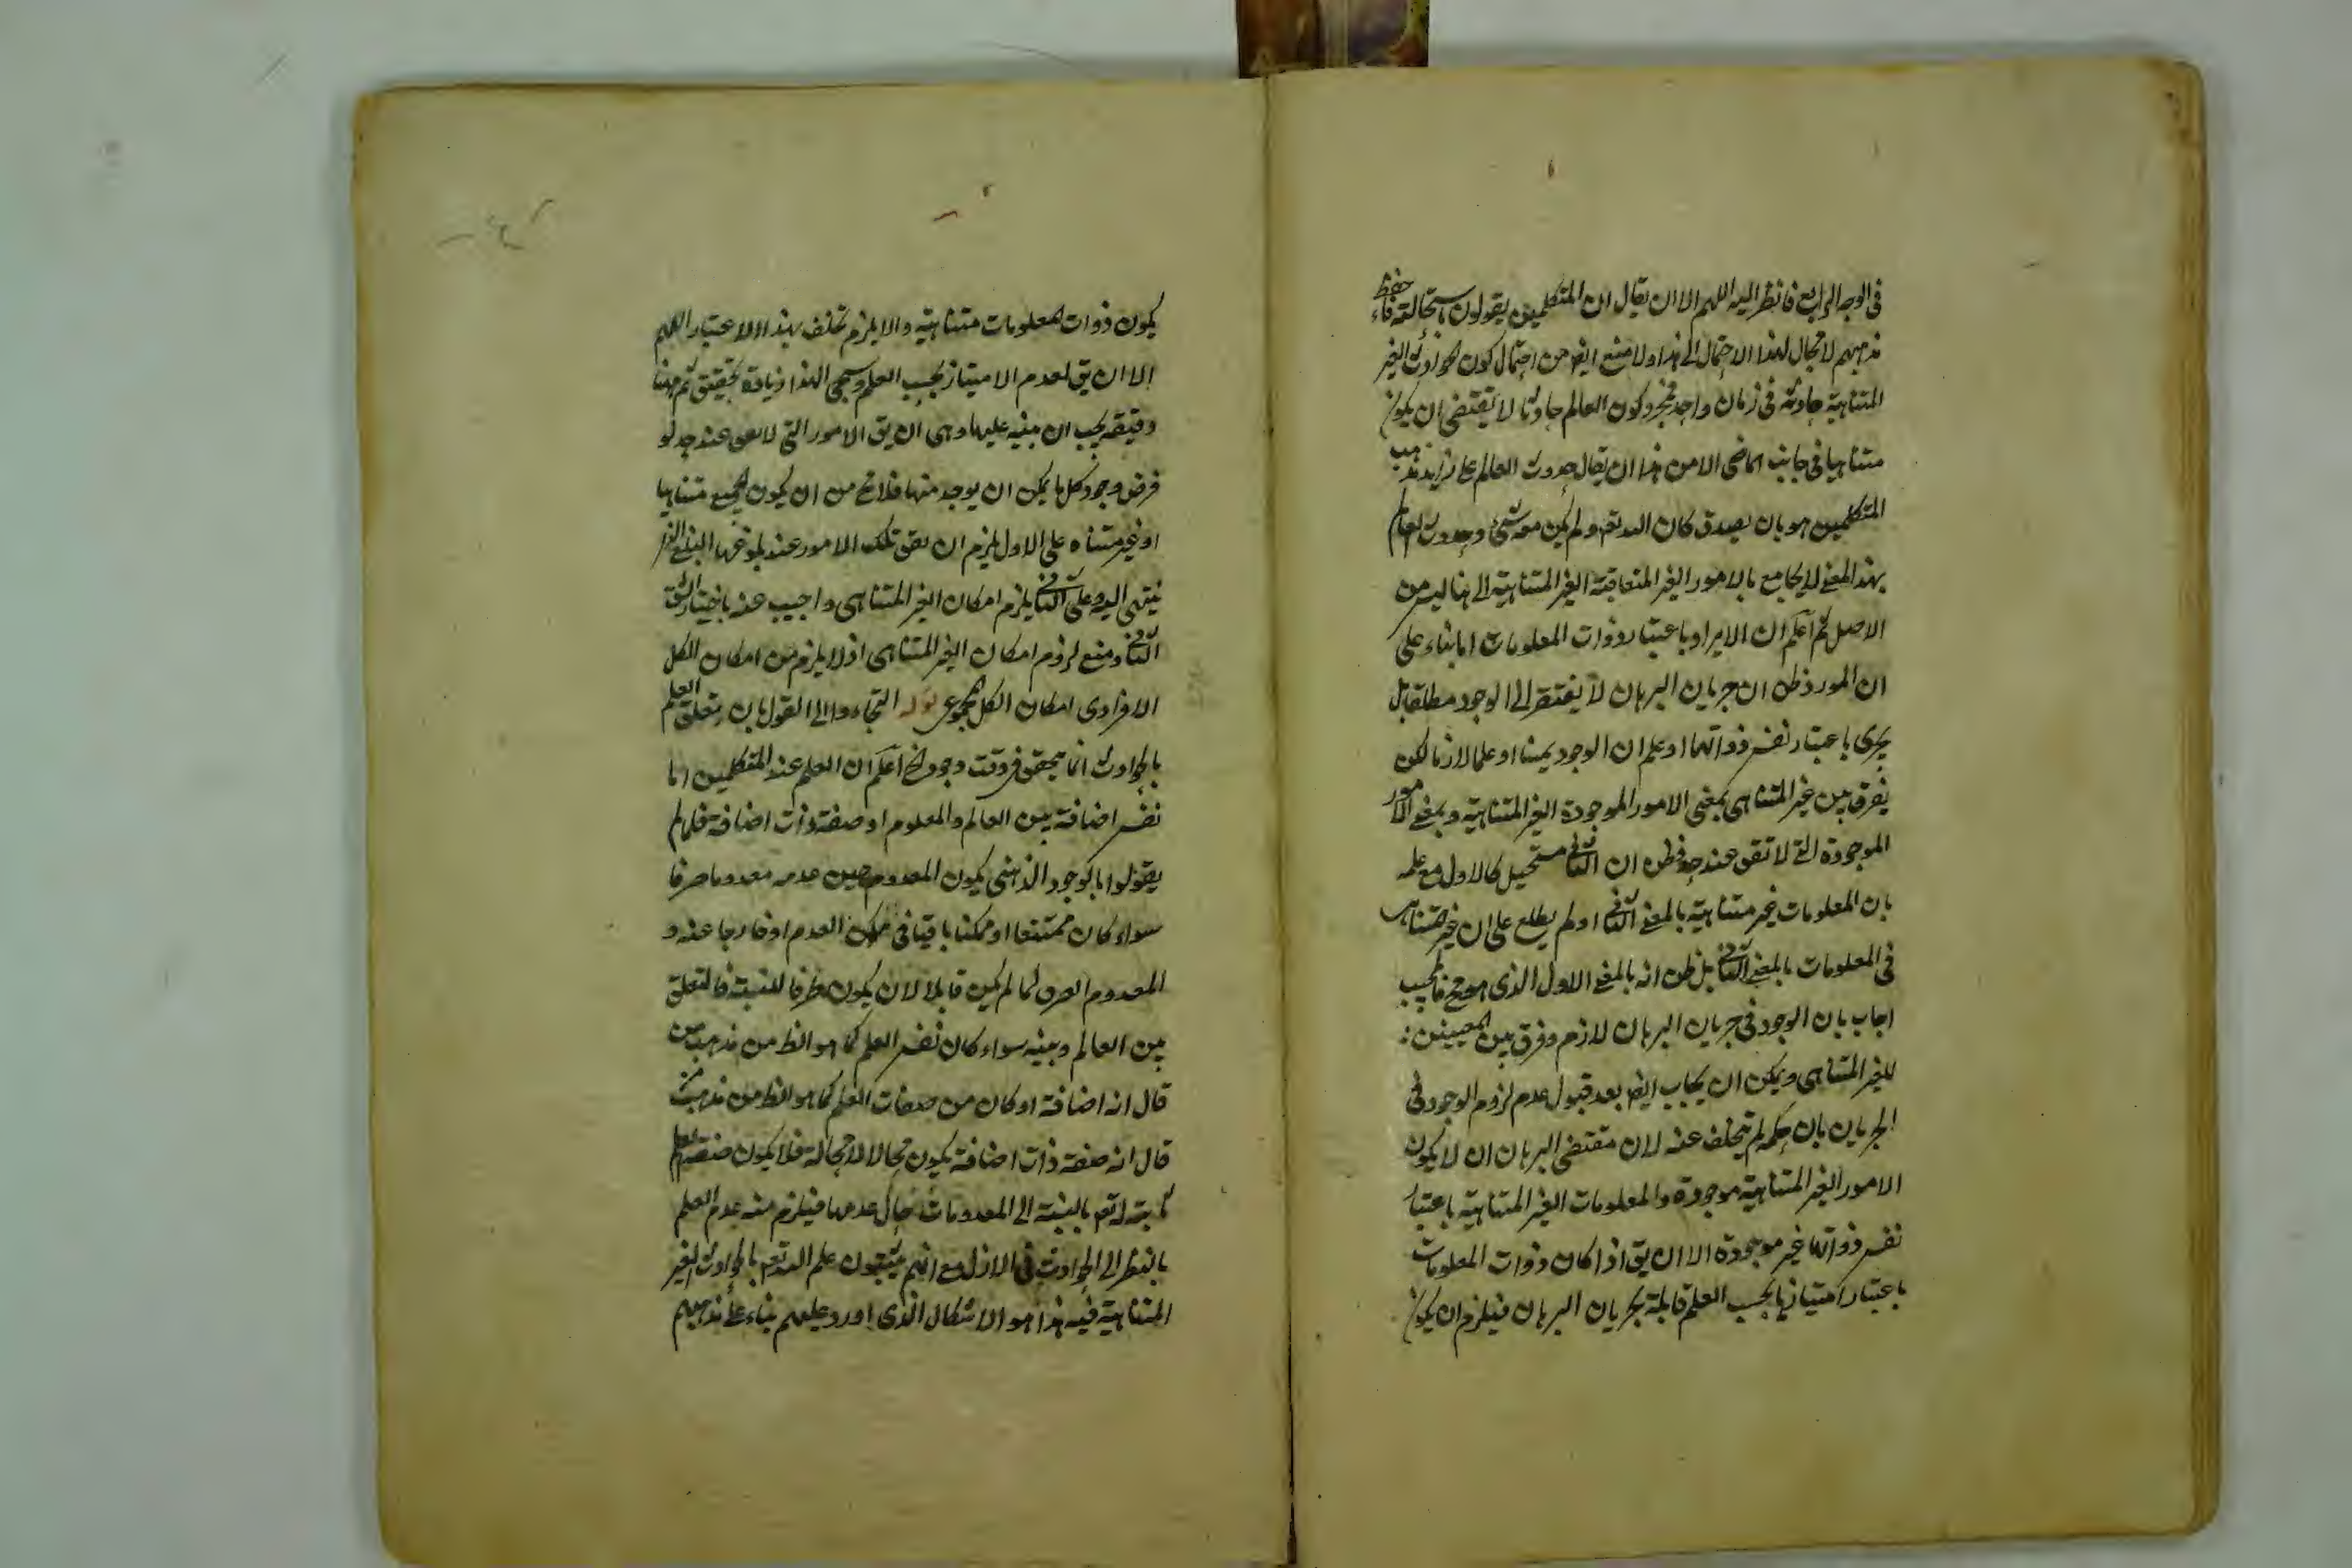 فى الوجه الرابع فانظر اليه اللهم الا ان يقال ان المتكلمين يقولون باستحالته فاحفظ
مذهبهم لا مجال لهذا الاحتمال الى هذا ولا منع ايضا من احتمال كون الحوادث الغير
المتناهية حادثة فى زمان واحد فمجرد كون العالم حادثا لا يقتضى ان يكون
متناهيا فى جانب الماضى الا من هذا ان يقال حدوث العالم على مذهب
المتكلمين هو بان يصدق كان الله تع ولم يكن معه شئ وحدوث العالم
بهذا المعنى لا يجامع بالامور الغير المتعاقبة الغير المتناهية الى هنا ليس من
الاصل ثم اعلم ان الايراد باعتبار ذوات المعلومات اما بناء على
ان المورد ظن ان جريان البرهان لا يفتقر الى الوجود مطلقا بل
يجرى باعتبار نفس ذواتها او علم ان الوجود عينا او علما لازما لكن
يفرق بين غير المتناهى بمعنى الامور الموجودة الغير المتناهية وبمعنى الامور
الموجودة التى لا تقف عند حد فظن ان الثانى مستحيل كالاول مع علمه
بان المعلومات غير متناهية بالمعنى الثانى او لم يطلع على ان غير متناهية
فى المعلومات بالمعنى الثانى بل ظن انه بالمعنى الاول الذى هو مح فالمجيب
اجاب بان الوجود فى جريان البرهان لازم وفرق بين المعنيين
للغير المتناهى ويمكن ان يجاب ايضا بعد قبول عدم لزوم الوجود فى
الجريان بان حكمه لم يتخلف عنه لان مقتضى البرهان ان لا يكون
الامور الغير المتناهية موجودة والمعلومات الغير المتناهية باعتبار
نفس ذواتها غير موجودة الا ان يق اذا كان ذوات المعلومات
باعتبار امتيازها بحسب العلم قابلة بجريان البرهان فيلزم ان يكون
يكون ذوات المعلومات متناهية والا يلزم تخلف بهذا الاعتبار اللهم
الا ان يق لعدم الامتياز بحسب العلم وسيجى لهذا زيادة تحقيق ثم ههنا
دقيقة يجب ان ينبه عليها وهى ان يق الامور التى لا تقف عند حد لو
فرض وجود كل ما يمكن ان يوجد منها فلا يخ من ان يكون الجميع متناهيا
او غير متناه على الاول يلزم ان يقف تلك الامور عند بلوغها المبلغ الذى
ينتهى اليه وعلى الثانى يلزم امكان الغير المتناهى واجيب عنه باختيار الشق
الثانى ومنع لزوم امكان الغير المتناهى اذ لا يلزم من امكان الكل
الافرادى امكان الكل المجموعى قوله التجاءوا الى القول بان يتعلق العلم
بالحوادث انما يتحقق فى وقت وجود الخ اعلم ان العلم عند المتكلمين اما
نفس اضافة بين العالم والمعلوم او صفة ذات اضافة فلما لم
يقولوا بالوجود الذهنى يكون المعدوم حين عدمه معدوما صرفا
سواء كان ممتنعا او ممكنا باقيا فى العدم او خارجا عنه و
المعدوم الصرف لما لم يكن قابلا لان يكون طرفا للنسبة فالتعلق
بين العالم وبينه سواء كان نفس العلم كما هو الظ من مذهب من
قال انه اضافة او كان من صفات العلم كما هو الظ من مذهب من
قال انه صفة ذات اضافة يكون محالا لا محالة فلا يكون صفة العلم
ثابتة له تع بالنسبة الى المعدومات حال عدمها فيلزم منه عدم العلم
بالنظر الى الحوادث فى الازل مع انهم يثبتون علم الله تع بالحوادث الغير
المتناهية فيه هذا هو الاشكال الذى اورد عليهم بناء على مذهبهم